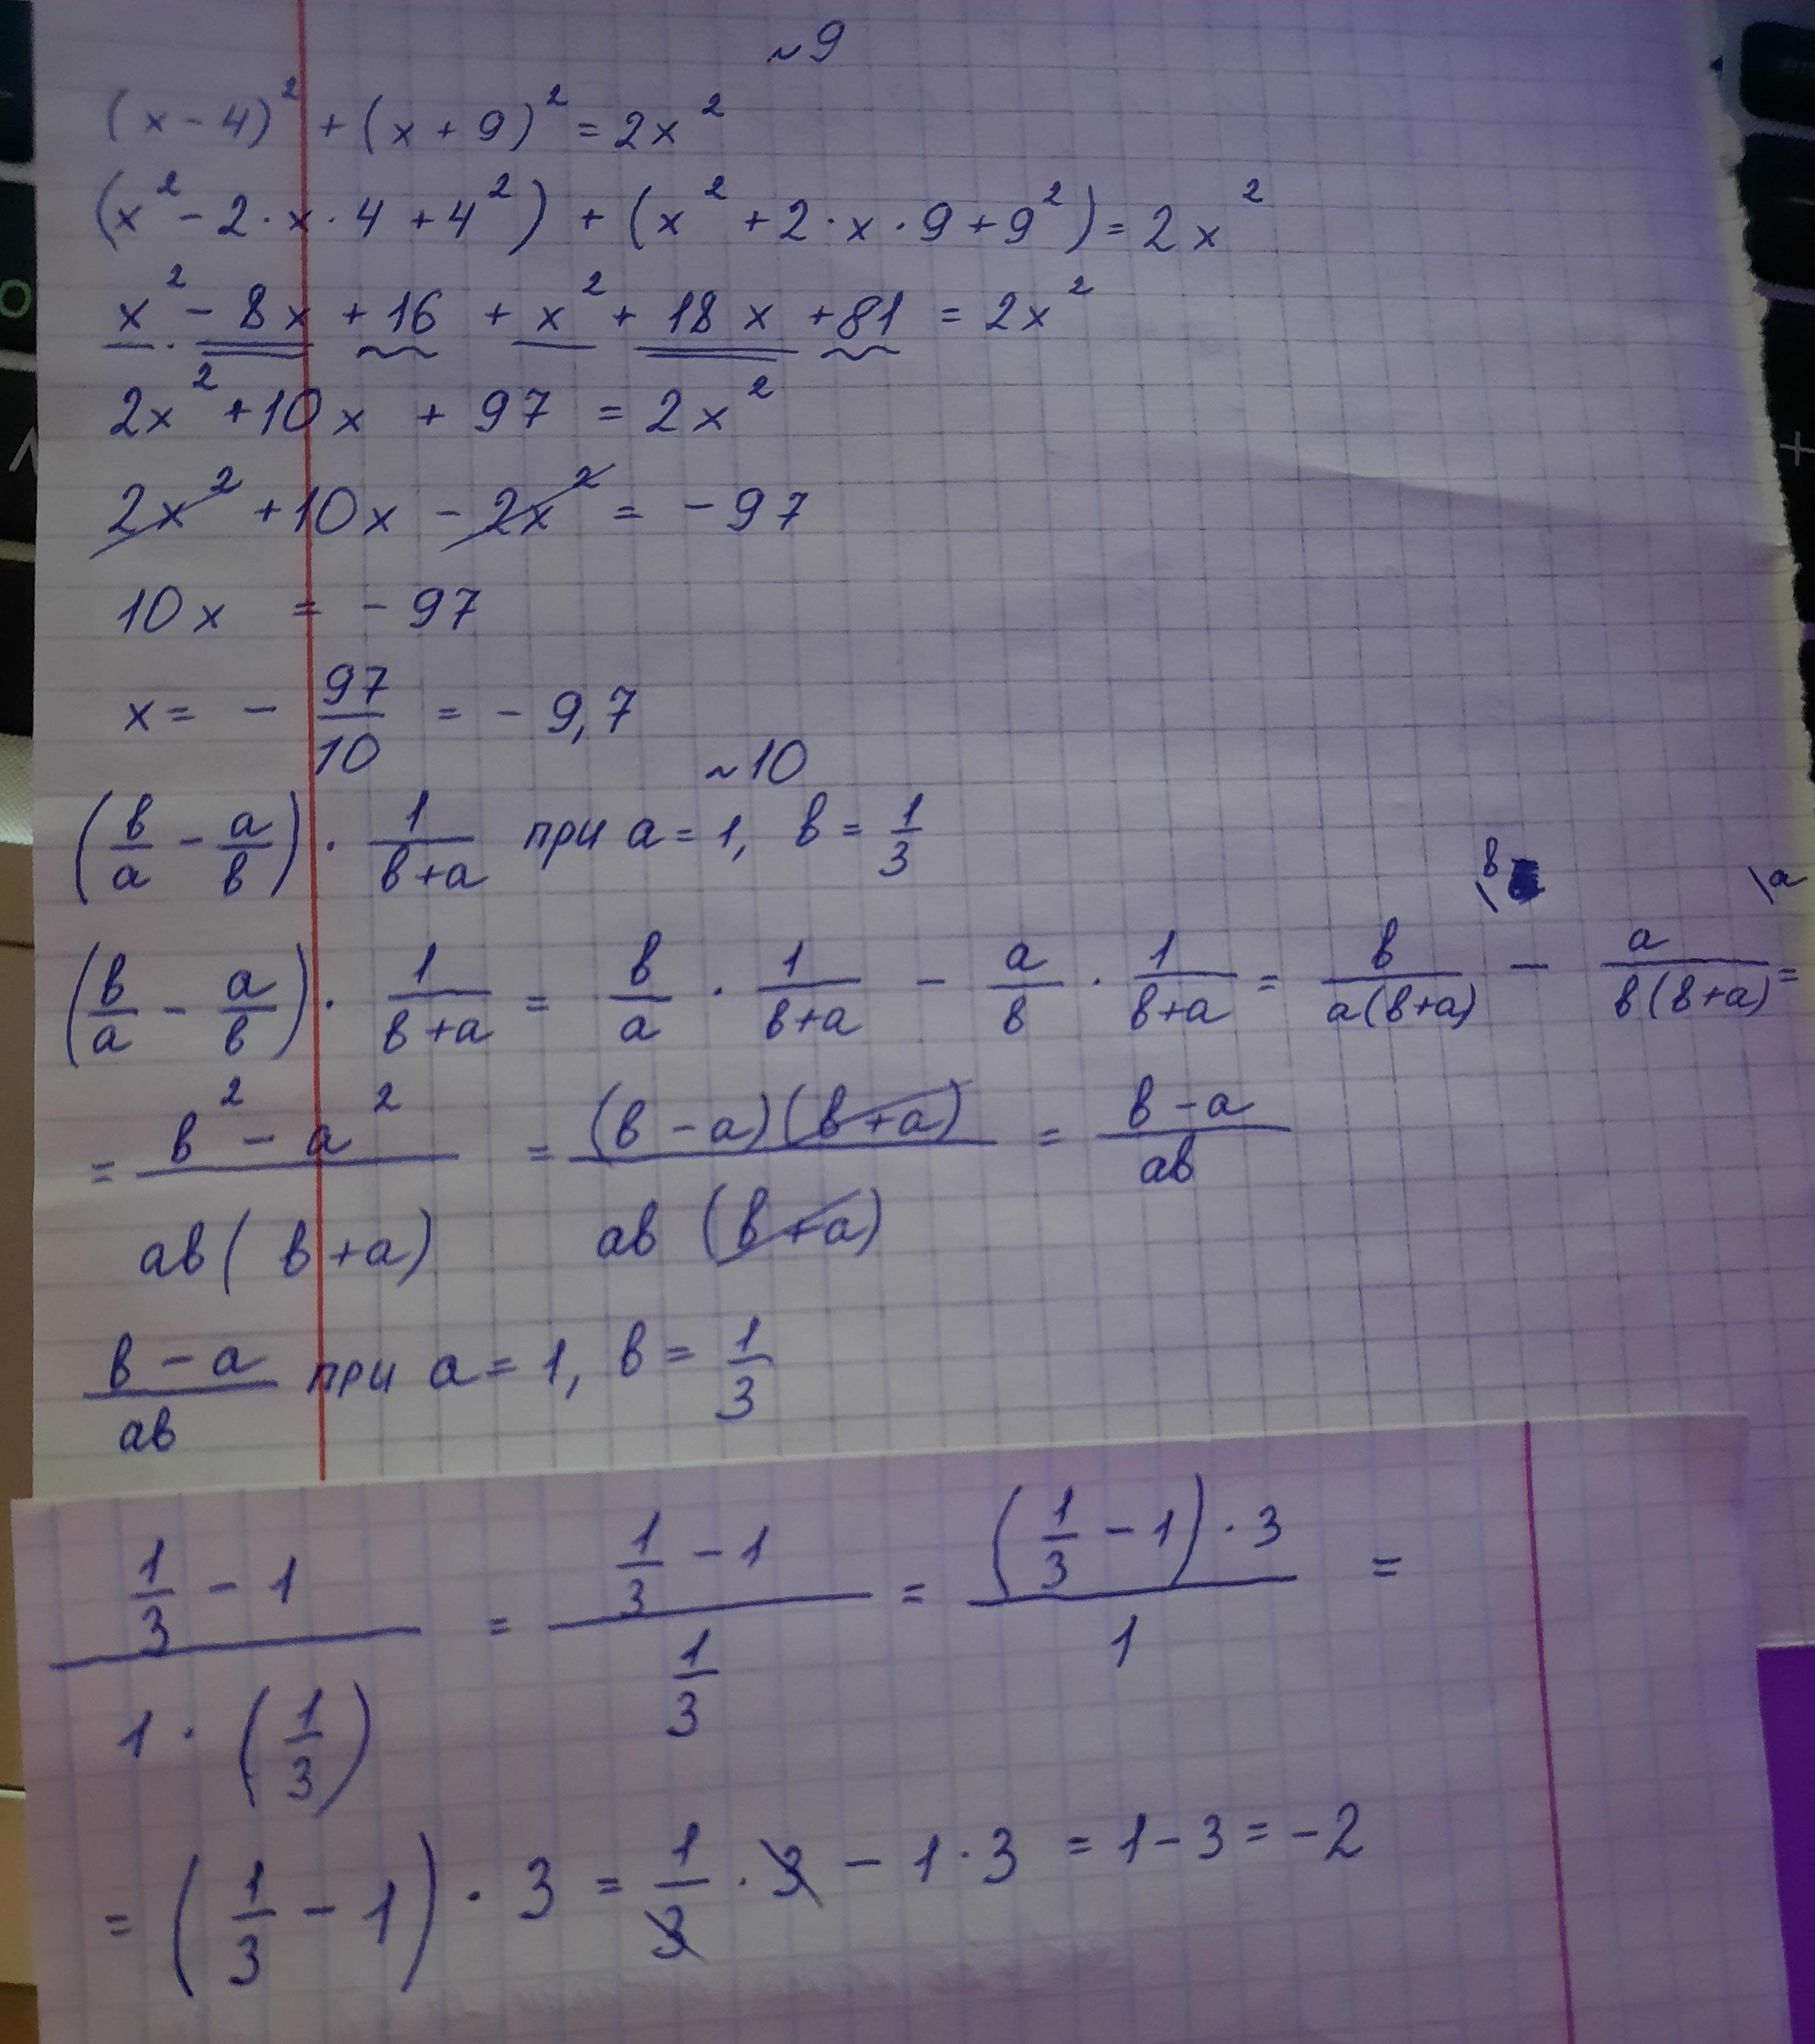 ~9
(x-4)² + (x+9)² = 2x²
(x² - 2·x·4 + 4²) + (x² + 2·x·9 + 9²) = 2x²
x² - 8x + 16 + x² + 18x + 81 = 2x²
2x² + 10x + 97 = 2x²
2x² + 10x - 2x² = -97
10x = -97
x = - 97/10 = -9,7
~10
(в/a - a/в) · 1/(в+a) при a = 1, в = 1/3
(в/a - a/в) · 1/(в+a) = в/a · 1/(в+a) - a/в · 1/(в+a) = в/(a(в+a)) \в - a/(в(в+a)) \a =
= (в² - a²)/(aв(в+a)) = ((в-a)(в+a))/(aв(в+a)) = (в-a)/(aв)
(в-a)/(aв) при a = 1, в = 1/3
(1/3 - 1)/(1·(1/3)) = (1/3 - 1)/(1/3) = ((1/3 - 1)·3)/1 =
= (1/3 - 1)·3 = 1/3·3 - 1·3 = 1-3 = -2